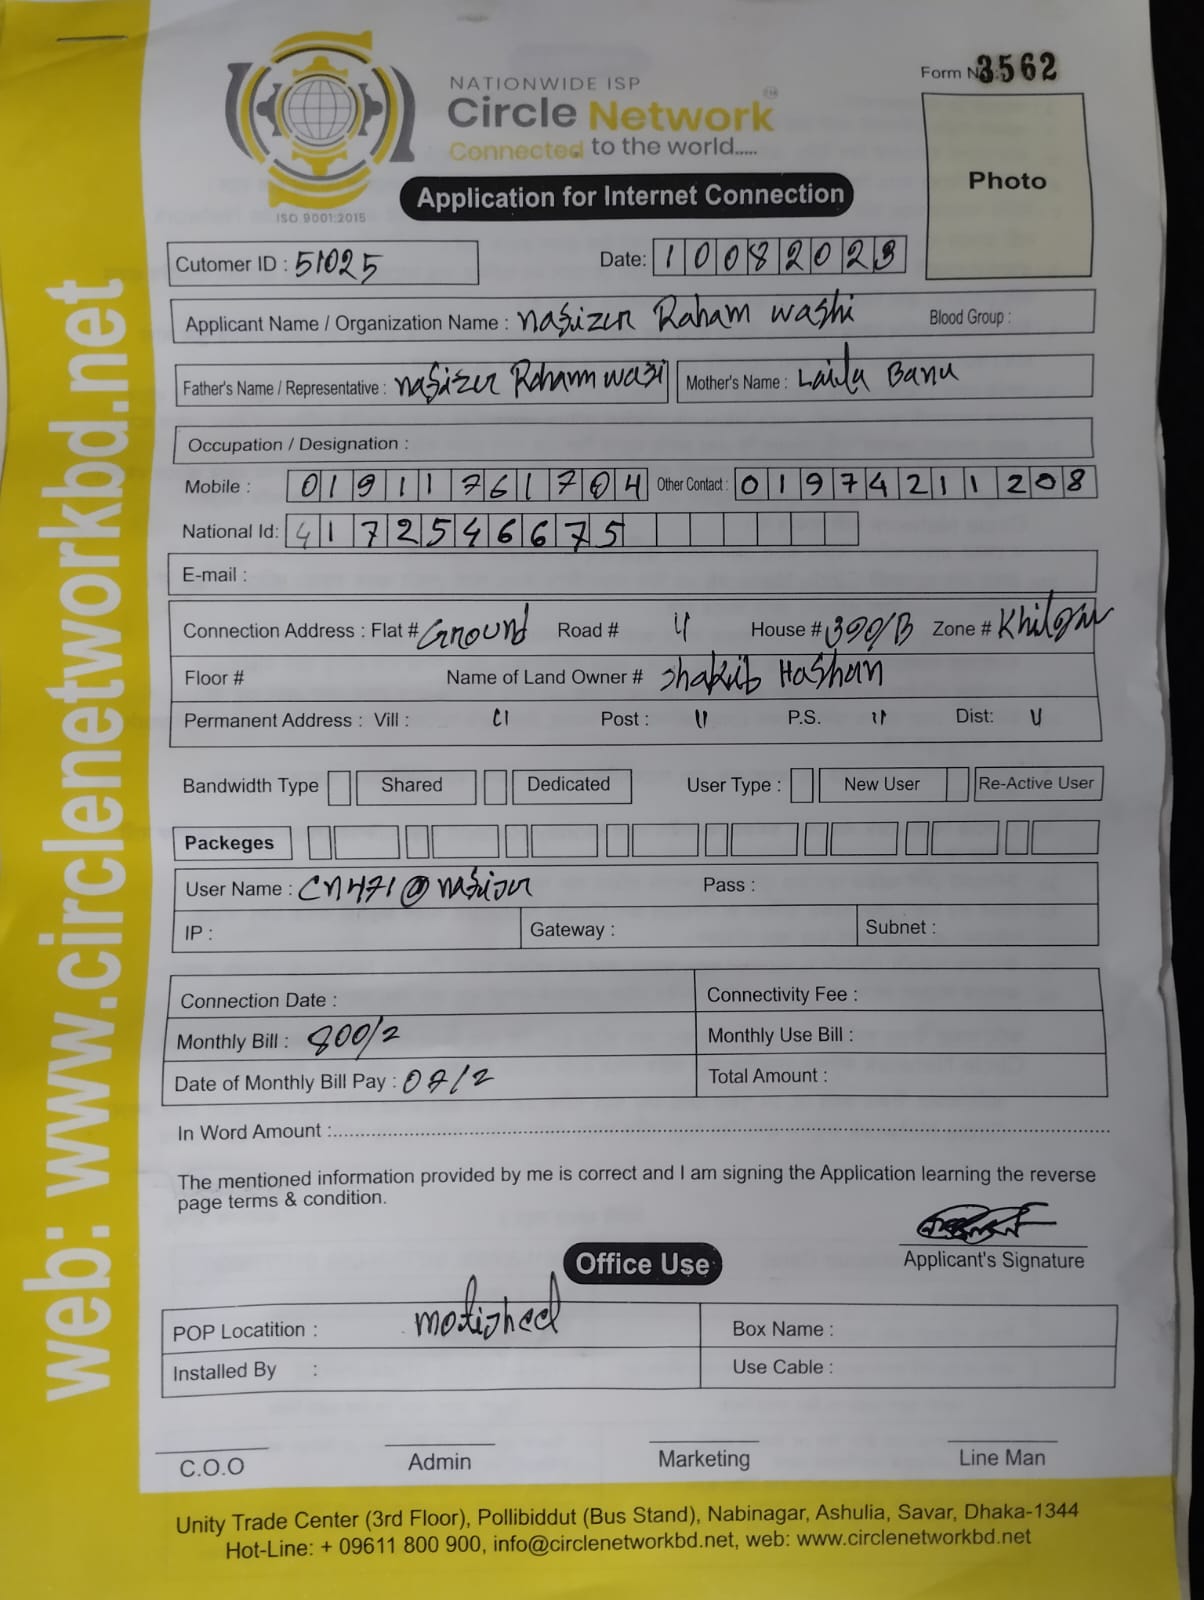 Form No: 3562
NATIONWIDE ISP
Circle Network
Connected to the world.....
ISO 9001:2015
Application for Internet Connection
Photo
Cutomer ID : 51025
Date: 10082023
Applicant Name / Organization Name : Nasizur Raham washi Blood Group :
Father's Name / Representative : Nasizur Raham wasi Mother's Name : Laila Banu
Occupation / Designation :
Mobile : 01911761704 Other Contact : 01974211208
National Id: 4172546675
E-mail :
Connection Address : Flat # Ground Road # 4 House # 390/B Zone #
Floor # Name of Land Owner # Shakib Hashan
Permanent Address : Vill : 〃 Post : 〃 P.S. 〃 Dist: 〃
Bandwidth Type Shared Dedicated User Type : New User Re-Active User
Packeges
User Name : CN471@nasizur Pass :
IP : Gateway : Subnet :
Connection Date : Connectivity Fee :
Monthly Bill : 800/2 Monthly Use Bill :
Date of Monthly Bill Pay : 07/2 Total Amount :
In Word Amount :
The mentioned information provided by me is correct and I am signing the Application learning the reverse
page terms & condition.
Applicant's Signature
Office Use
POP Locatition : motijheel Box Name :
Installed By : Use Cable :
C.O.O Admin Marketing Line Man
Unity Trade Center (3rd Floor), Pollibiddut (Bus Stand), Nabinagar, Ashulia, Savar, Dhaka-1344
Hot-Line: + 09611 800 900, info@circlenetworkbd.net, web: www.circlenetworkbd.net
web: www.circlenetworkbd.net